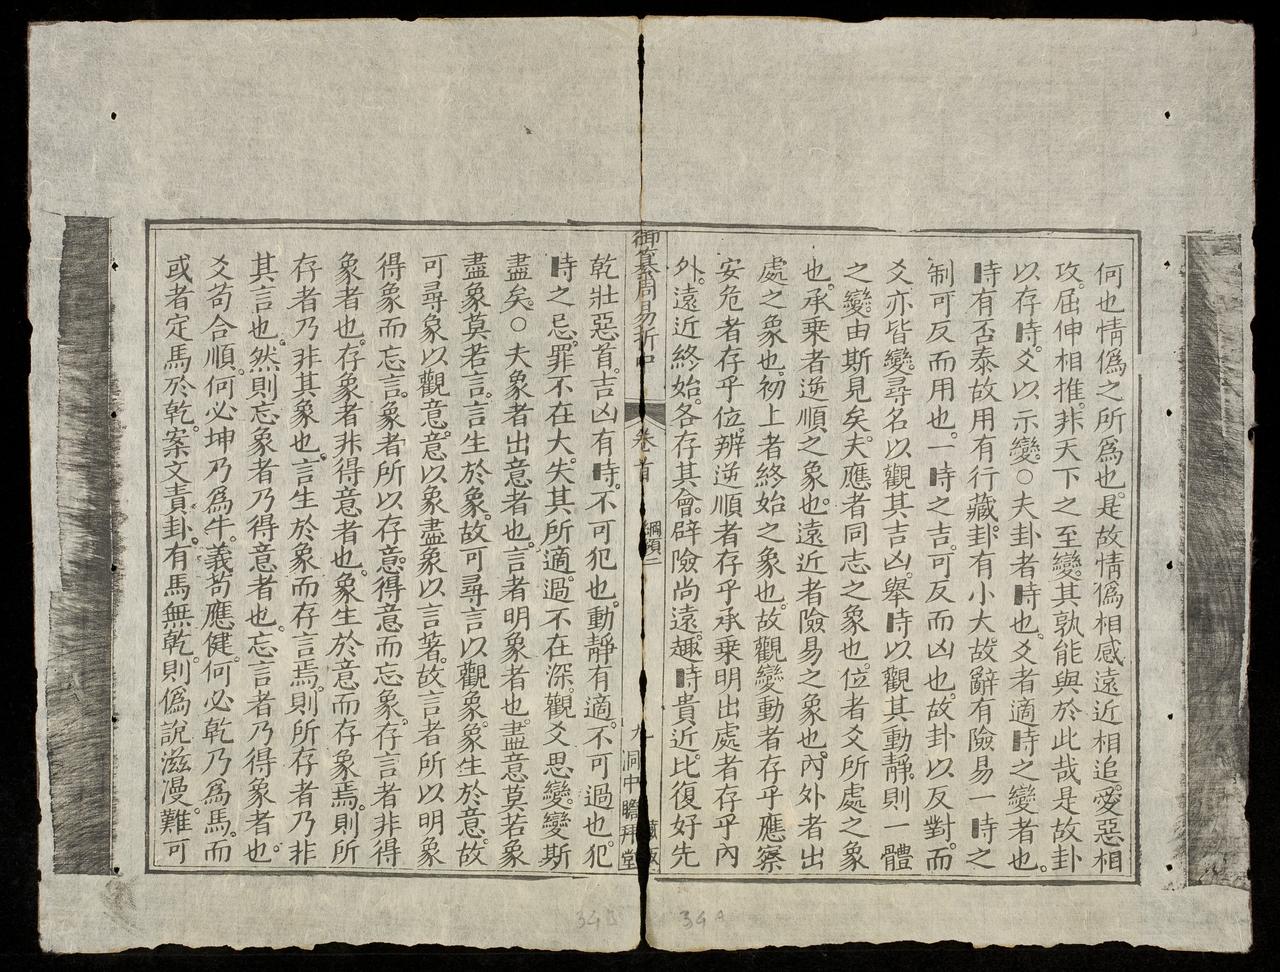 何也情僞之所爲也。是故情僞相感遠近相追。愛惡相
攻。屈伸相推。非天下之至變。其孰能與於此哉是故卦
以存時。爻以示變。○夫卦者時也。爻者適時之變者也。
時有否泰故用有行藏。卦有小大。故辭有險易一時之
制可反而用也。一時之吉。可反而凶也。故卦以反對。而
爻亦皆變。尋名以觀其吉凶。舉時以觀其動靜。則一體
之變。由斯見矣。夫應者同志之象也。位者爻所處之象
也。承乘者逆順之象也。遠近者險易之象也。內外者出
處之象也。初上者終始之象也。故觀變動者存乎應。察
安危者存乎位。辨逆順者存乎承乘明出處者存乎內
外。遠近終始。各存其會。辟險尚遠。趣時貴近。比復好先
御纂周易折中 卷首 綱領二 九 洞中瞻拜堂藏板
乾壯惡首。吉凶有時。不可犯也。動靜有適。不可過也。犯
時之忌。罪不在大。失其所適。過不在深。觀爻思變。變斯
盡矣。○夫象者出意者也。言者明象者也。盡意莫若象
盡象莫若言。言生於象。故可尋言以觀象。象生於意。故
可尋象以觀意。意以象盡象以言著。故言者所以明象
得象而忘言。象者所以存意。得意而忘象。存言者非得
象者也。存象者非得意者也。象生於意而存象焉。則所
存者乃非其象也。言生於象而存言焉。則所存者乃非
其言也。然則忘象者乃得意者也。忘言者乃得象者也。
爻苟合順。何必坤乃爲牛。義苟應健。何必乾乃爲馬。而
或者定馬於乾。案文責卦。有馬無乾。則僞說滋漫。難可
34B 34A